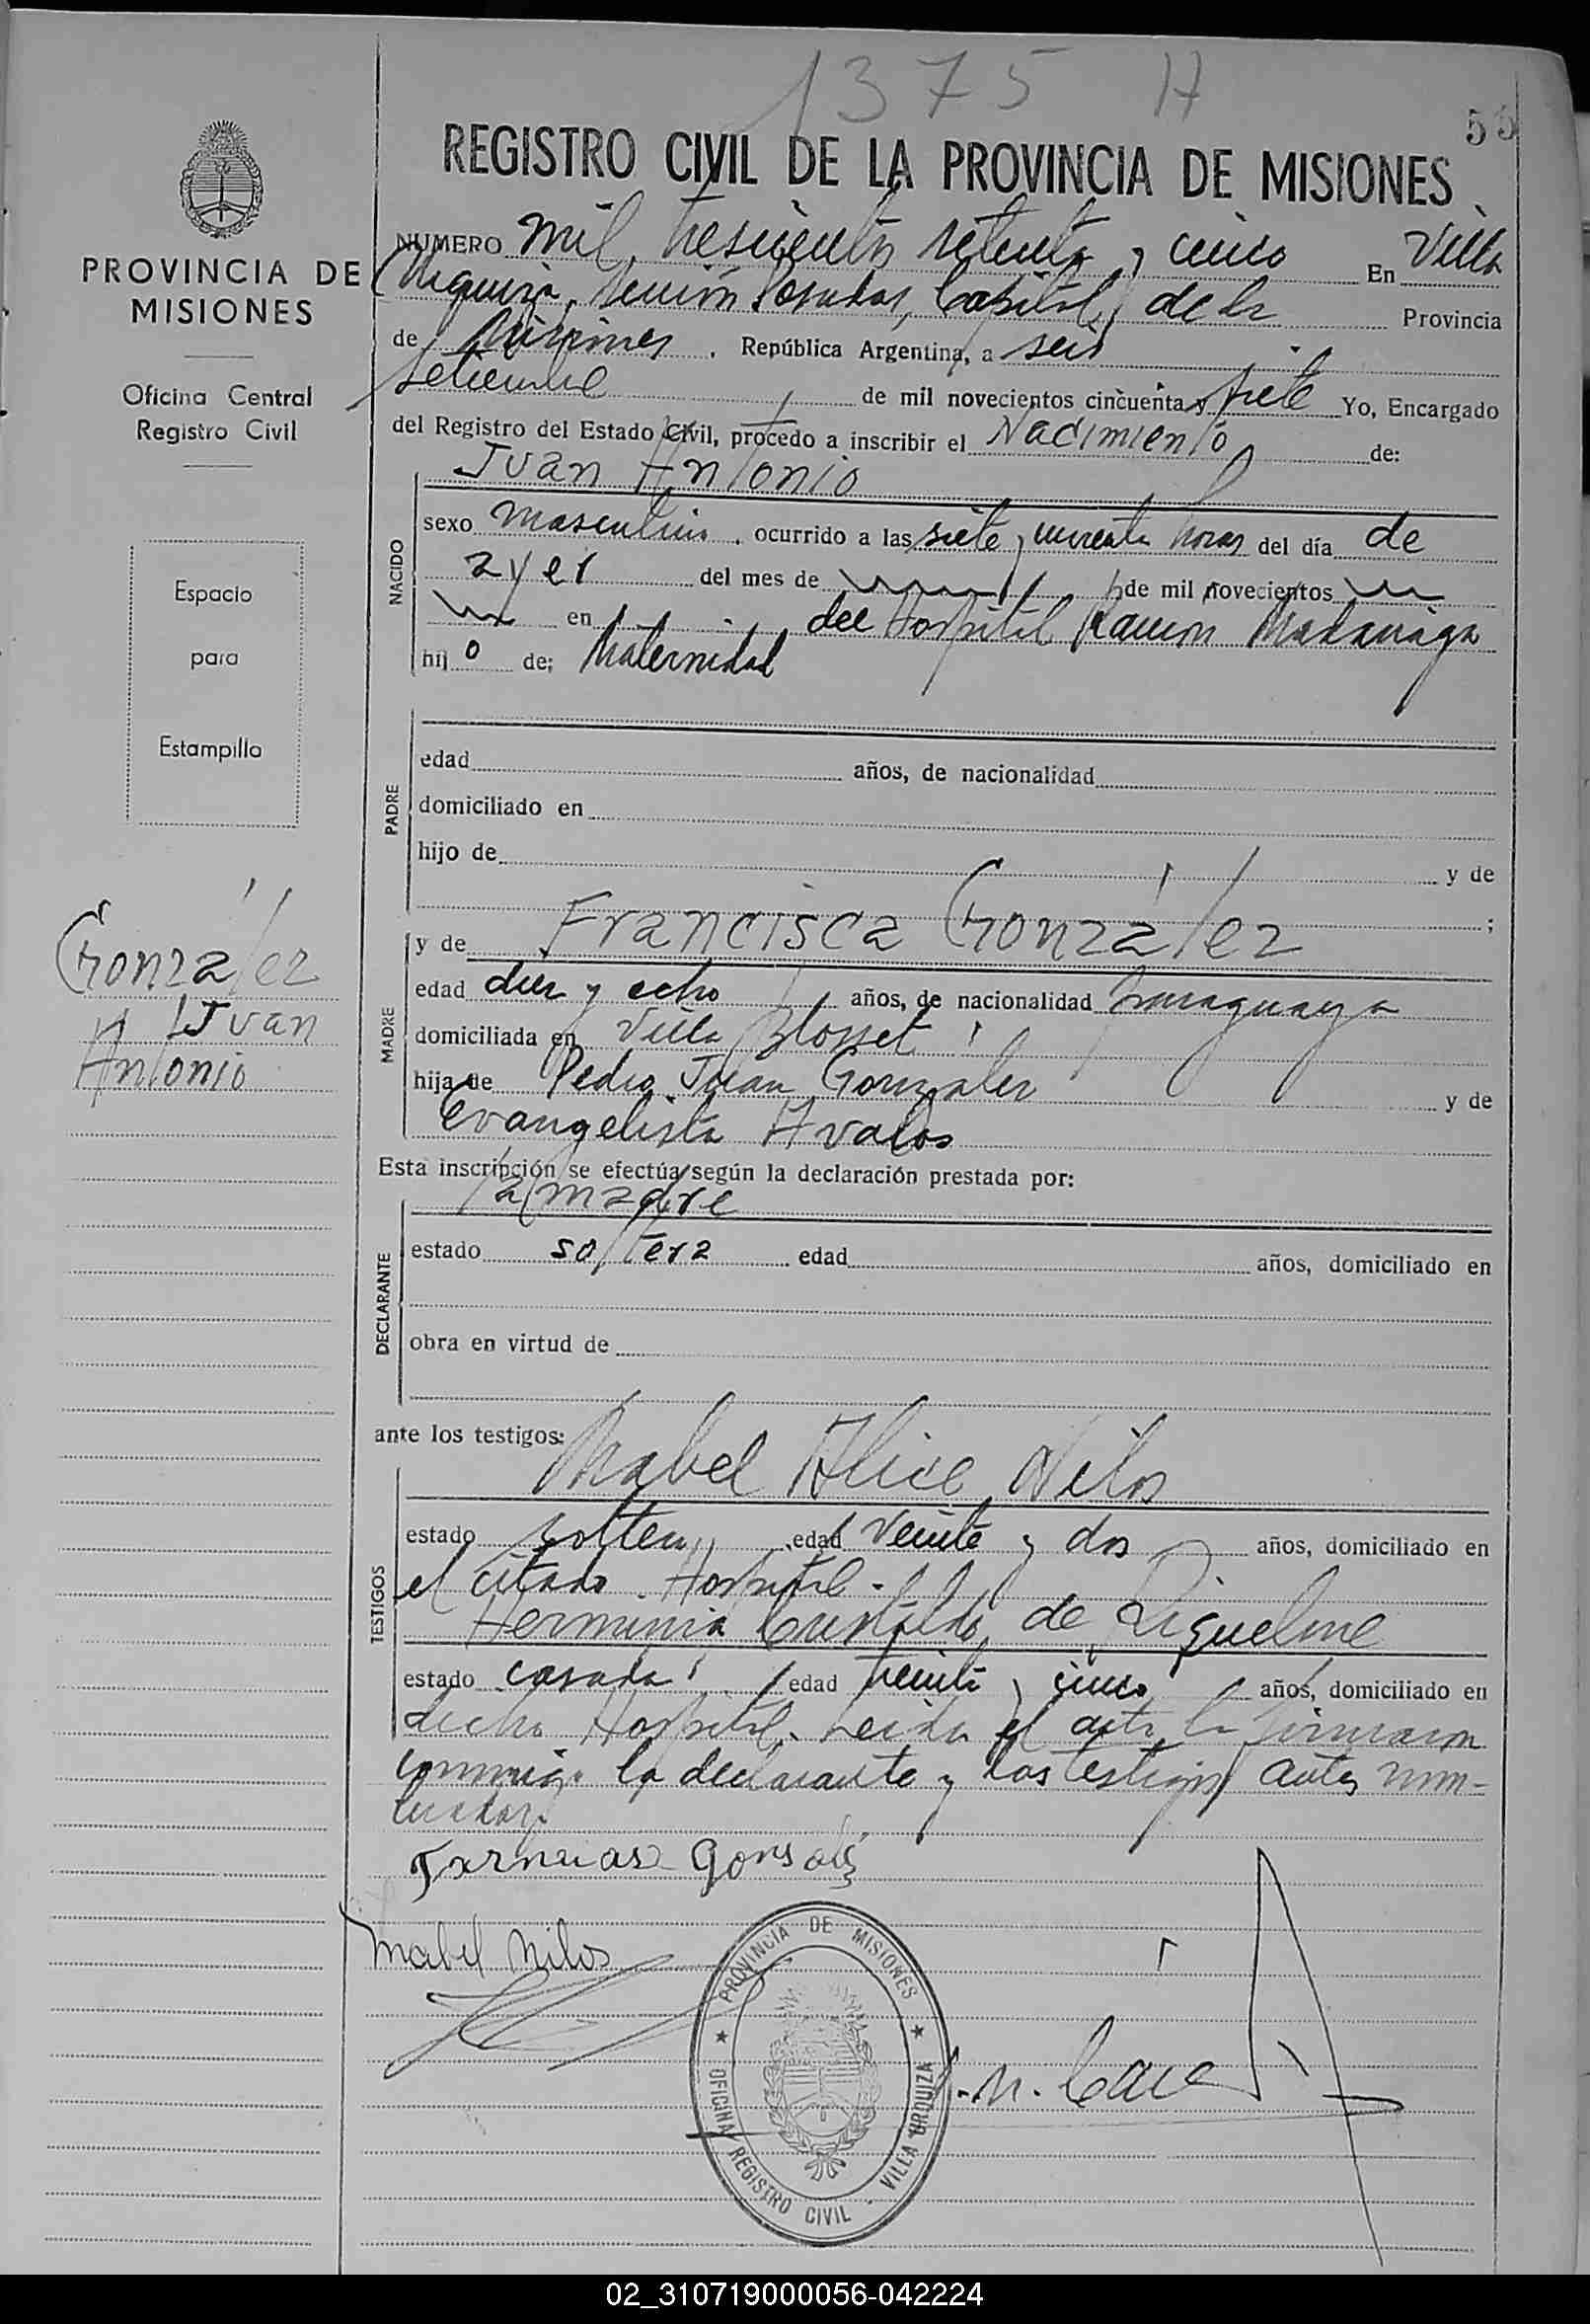 1375 A
55
REGISTRO CIVIL DE LA PROVINCIA DE MISIONES
PROVINCIA DE
MISIONES
Oficina Central
Registro Civil
Espacio
para
Estampilla
González
Juan
Antonio
NUMERO mil trescientos setenta y cinco En Villa
Urquiza, sección Posadas, Capital, de la Provincia
de Misiones, República Argentina, a seis
setiembre de mil novecientos cincuenta y siete Yo, Encargado
del Registro del Estado Civil, procedo a inscribir el Nacimiento de:
Juan Antonio
NACIDO
sexo masculino, ocurrido a las siete y cuarenta horas del día de
ayer del mes de de mil novecientos
en del Hospital Ramón Madariaga
hij o de; Maternidad
PADRE
edad años, de nacionalidad
domiciliado en
hijo de y de
;
MADRE
y de Francisca González
edad diez y ocho años, de nacionalidad paraguaya
domiciliada en Villa Blosset
hija de Pedro Juan Gonzalez y de
Evangelista Avalos
Esta inscripción se efectúa según la declaración prestada por:
la madre
DECLARANTE
estado soltera edad años, domiciliado en
obra en virtud de
ante los testigos:
Mabel Alice Nilos
TESTIGOS
estado soltera edad veinte y dos años, domiciliado en
el citado Hospital.
Herminia de Riquelme
estado casada edad treinta y cinco años, domiciliado en
dicho Hospital. Leida el acta la firmaron
conmigo la declarante y los testigos antes nom-
brados.
Mabel Nilos
PROVINCIA DE MISIONES
OFICINA REGISTRO CIVIL - VILLA URQUIZA
02_310719000056-042224